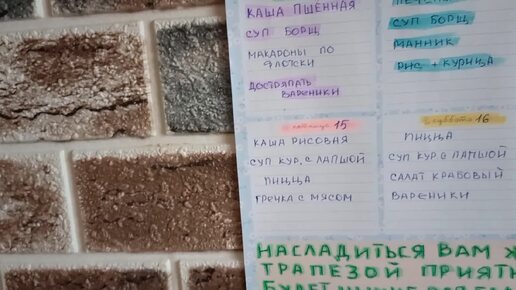 КАША ПШЕННАЯ
СУП БОРЩ
МАКАРОНЫ ПО
ФЛОТСКИ
ДОСТРЯПАТЬ
ВАРЕНИКИ
ПЕЧЕНЬ
СУП БОРЩ
МАННИК
РИС + КУРИЦА
пятница 15
КАША РИСОВАЯ
СУП КУР. С ЛАПШОЙ
ПИЦЦА
ГРЕЧКА С МЯСОМ
суббота 16
ПИЦЦА
СУП КУР. С ЛАПШОЙ
САЛАТ КРАБОВЫЙ
ВАРЕНИКИ
НАСЛАДИТЬСЯ ВАМ Ж
ТРАПЕЗОЙ ПРИЯТН